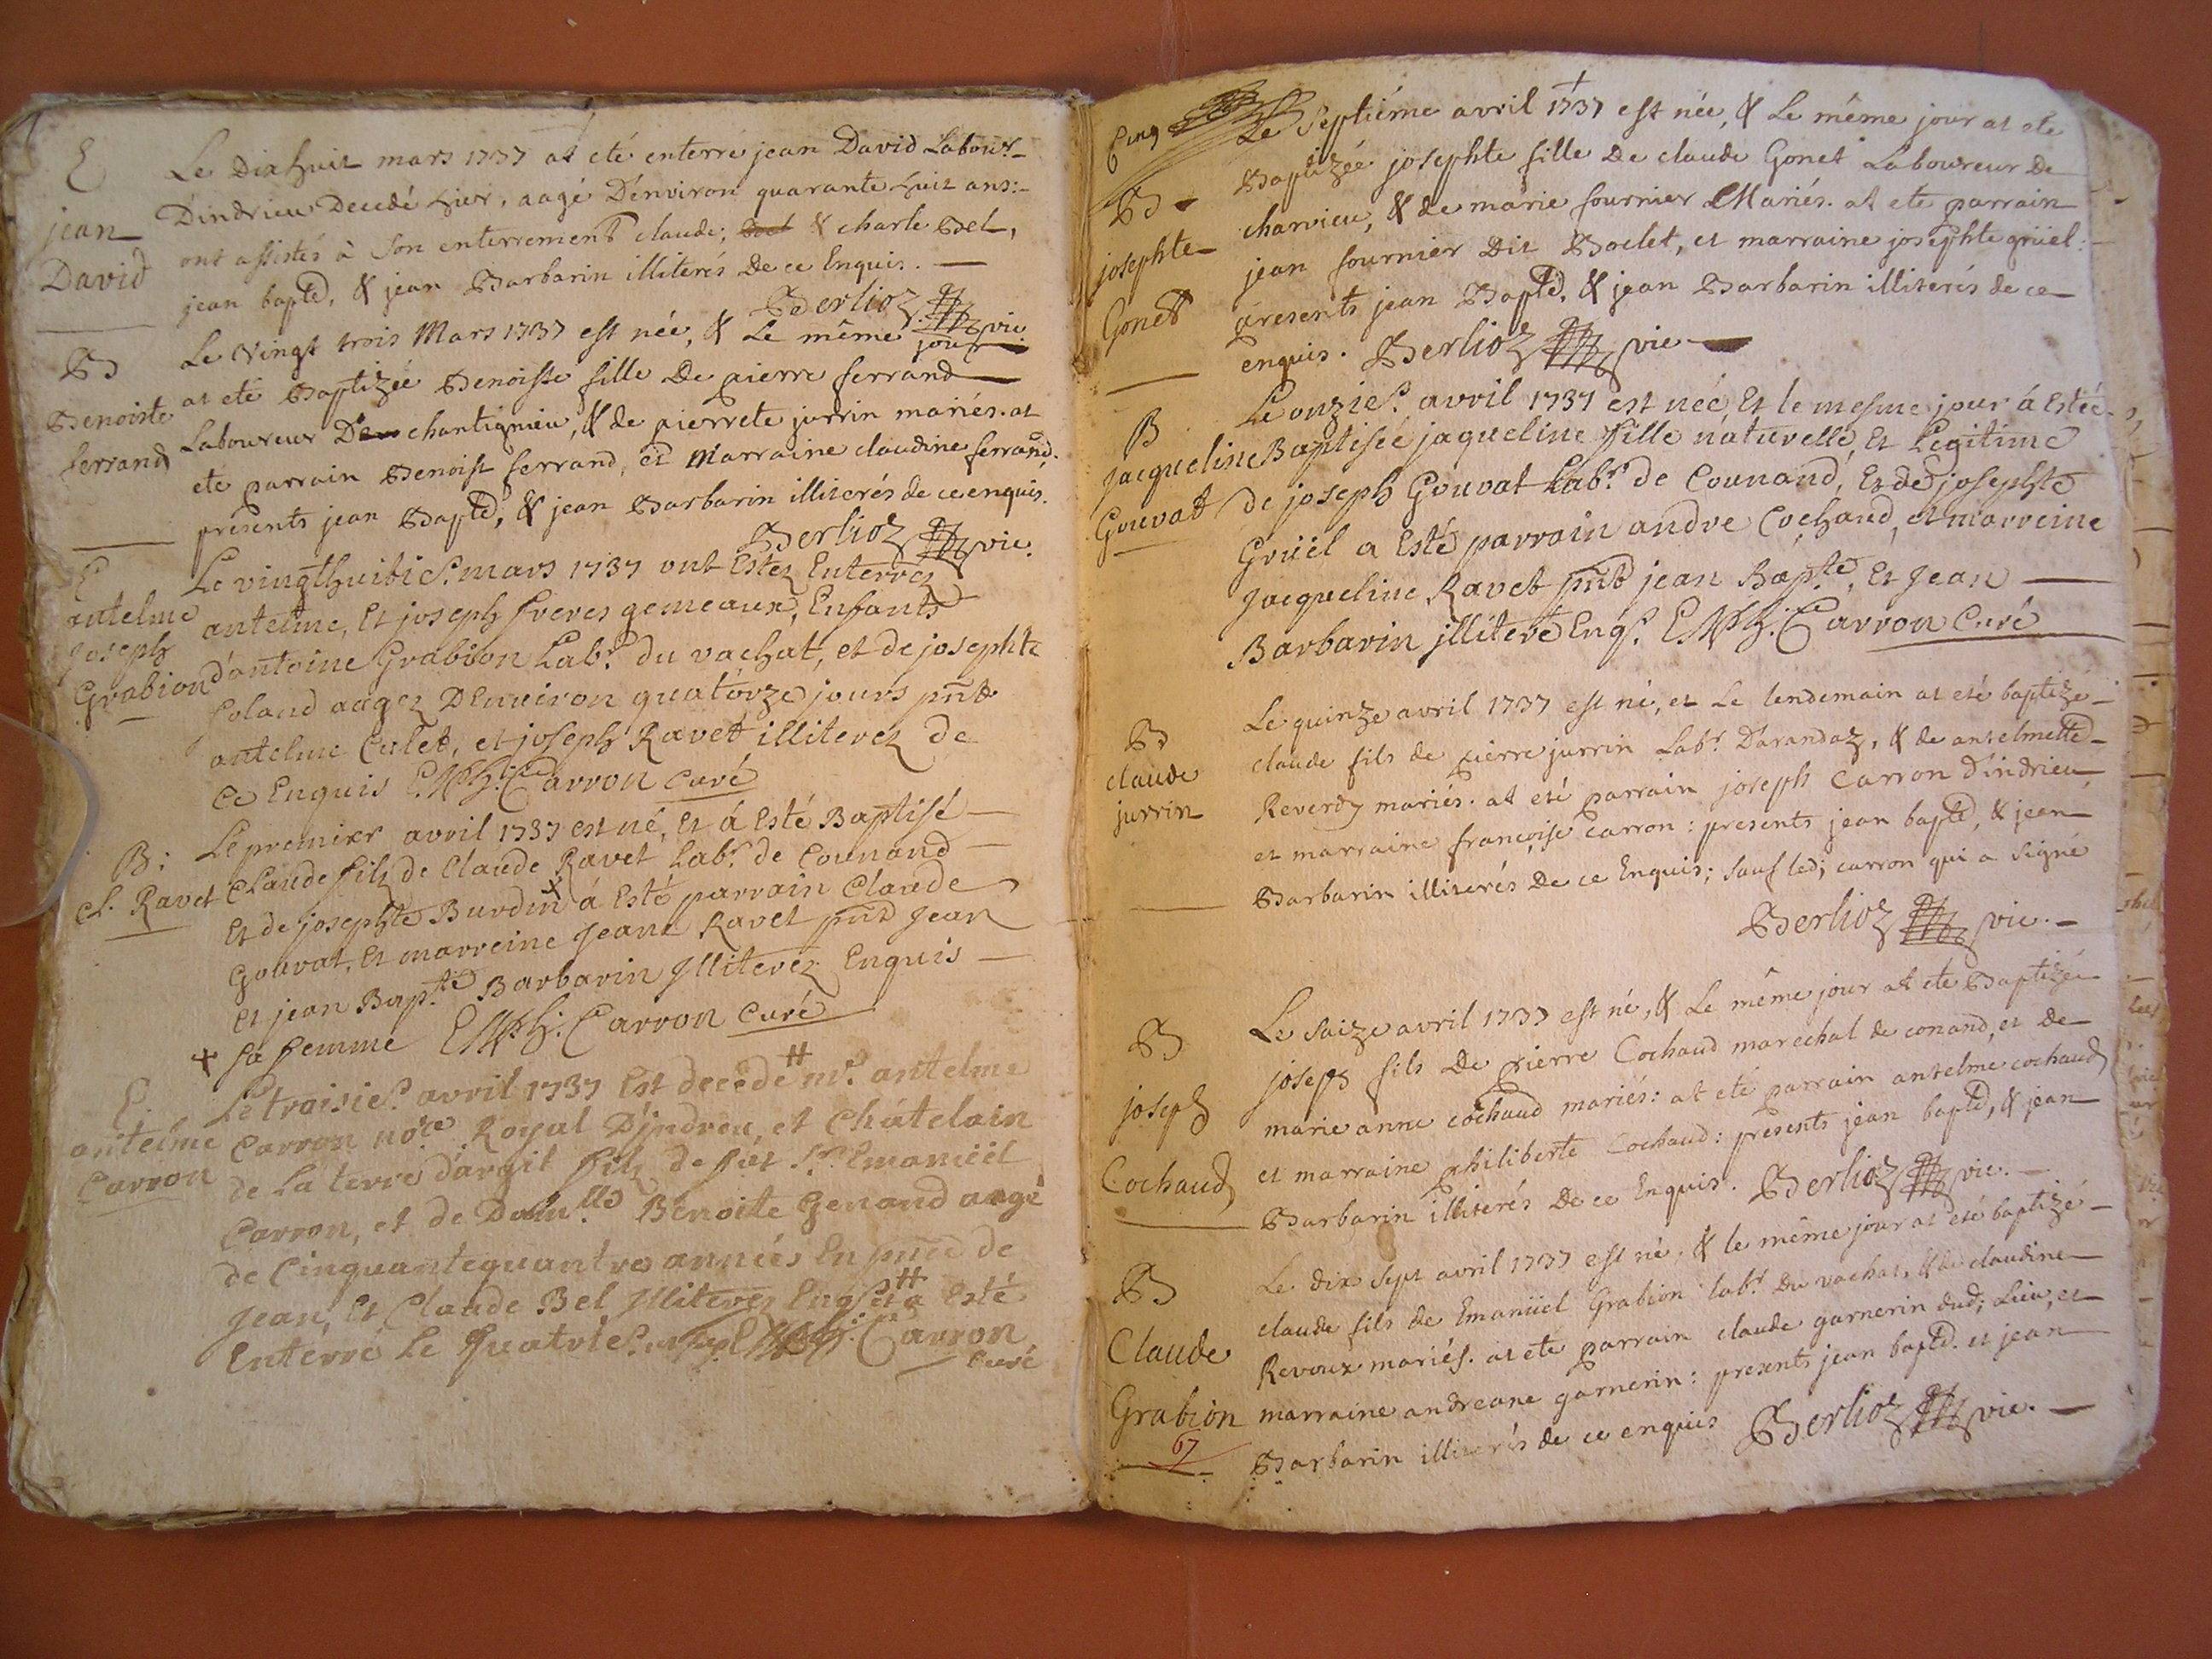 E
jean
David
Le Dixhuit mars 1737 at eté enterré jean David Labour-
D'indrieu Decedé hier, aagé D'environ quarante huit ans:
ont assistés à son enterrement claude; & charle Bel,
jean bapte, & jean Barbarin illiterés de ce Enquis.
Berlioz vic.
B
Benoiste
ferrand
Le Vingt trois Mars 1737 est née, & Le même jour
at eté Baptizée Benoiste fille De pierre ferrand
Laboureur De chantignieu, & de pierrete jurrin mariés. at
eté parrain Benoist ferrand, et Marraine claudine ferrand.
présents jean Bapte, & jean Barbarin illiterés de ce enquis.
Berlioz vic.
E
antelme
Joseph
Grabion
Le vingthuitie. mars 1737 ont Estez Enterrez
antelme, Et joseph freres gemeaux, Enfants
d'antoine Grabion Labr. du vachat, et de josephte
Goland aagez D'Environ quatorze jours pnts
antelme Culet, et joseph Ravet illiterez de
Ce Enquis Carron Curé
B:
Cl. Ravet
Le premier avril 1737 est né, Et á Esté Baptisé
Claude filz de Claude Ravet Labr. de Counand
Et de josephte Burdin x á Esté parrain Claude
Gouvat, Et marreine Jeane Ravet pnts Jean
Et jean Bapte Barbarin Illiterez Enquis
x sa femme Carron Curé
E
antelme
Carron
Le troisie. avril 1737 Est decedé # mr. antelme
Carron nore. Royal D'jndreu, et Châtelain
de La terre d'argit filz de fut Sr. Emanüel
Carron, et de Damlle Benoite Genand aagé
de Cinquantequantre années En pnce de
Jean, Et Claude Bel Illiterez Enqs. # Et a Esté
Enterré Le quatrie. Carron
Curé
Cinq
B
josephte
Gonet
Le Septiéme avril 1737 est née, & Le même jour at eté
Baptizée josephte fille De claude Gonet Laboureur De
charvieu, & de marie fournier Mariés. at eté parrain
jean fournier Dit Boclet, et marraine josephte grüel:
presents jean Bapte, & jean Barbarin illiterés de ce
enquis. Berlioz vic
B
Jacqueline
Gouvat
Le onzie. avril 1737 est néé, Et le mesme jour á Estéé
Baptiséé jaqueline fille naturelle, Et Légitime
de joseph Gouvat Labr. de Counand, Et de josephte
Grüel a Esté parrain andre Cochaud, et marreine
Jacqueline Ravet pnts jean Bapte, Et Jean
Barbarin jlliteré Enqs. Carron Curé
B
claude
jurrin
Le quinze avril 1737 est né, et Le lendemain at eté baptizé
claude fils de pierre jurrin Labr. D'arandaz, & de antelmette
Reverdy mariés. at eté parrain joseph Carron d'indrieu
et marraine françoise carron: presents jean bapte, & jean
Barbarin illiterés De ce Enquis; sauf led; carron qui a signé
Berlioz vic.
B
joseph
Cochaud
Le Saize avril 1737 est né, & Le même jour at eté Baptizé
joseph fils De pierre Cochaud marechal de conand, et De
marie anne cochaud mariés: at eté parrain antelme cochaud
et marraine philiberte Cochaud: presents jean bapte, & jean
Barbarin illiterés De ce Enquis. Berlioz vic.
B
Claude
Grabion
67
Le dix sept avril 1737 est né, & le même jour at eté baptizé
claude fils de Emanüel Grabion labr. Du vachat, & de claudine
Revoux mariés. at eté parrain claude garnerin dud; Lieu, et
marraine andreane garnerin: presents jean bapte. et jean
Barbarin illiterés de ce enquis Berlioz vic.